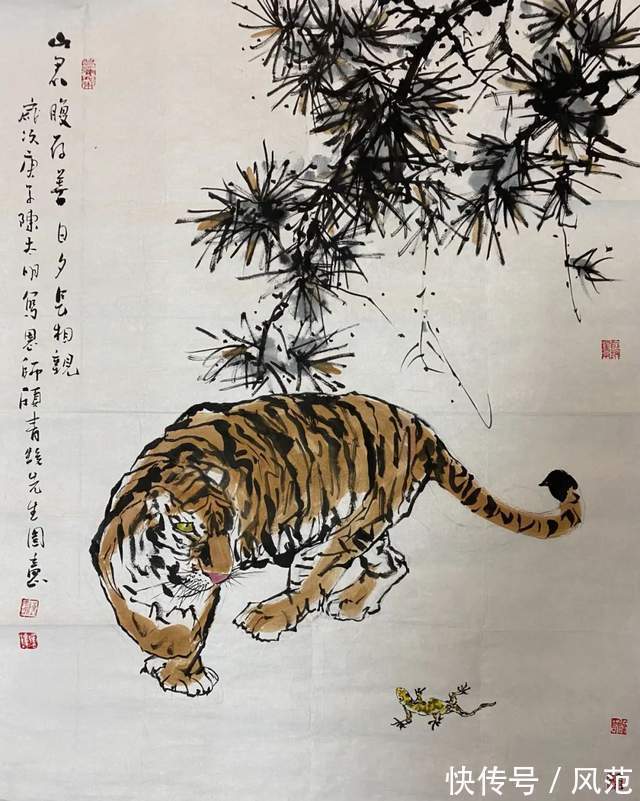 山君腹存善 日夕長相親
歲次庚子陳太明寫恩師頋青蛟先生圖意
快传号 / 风范